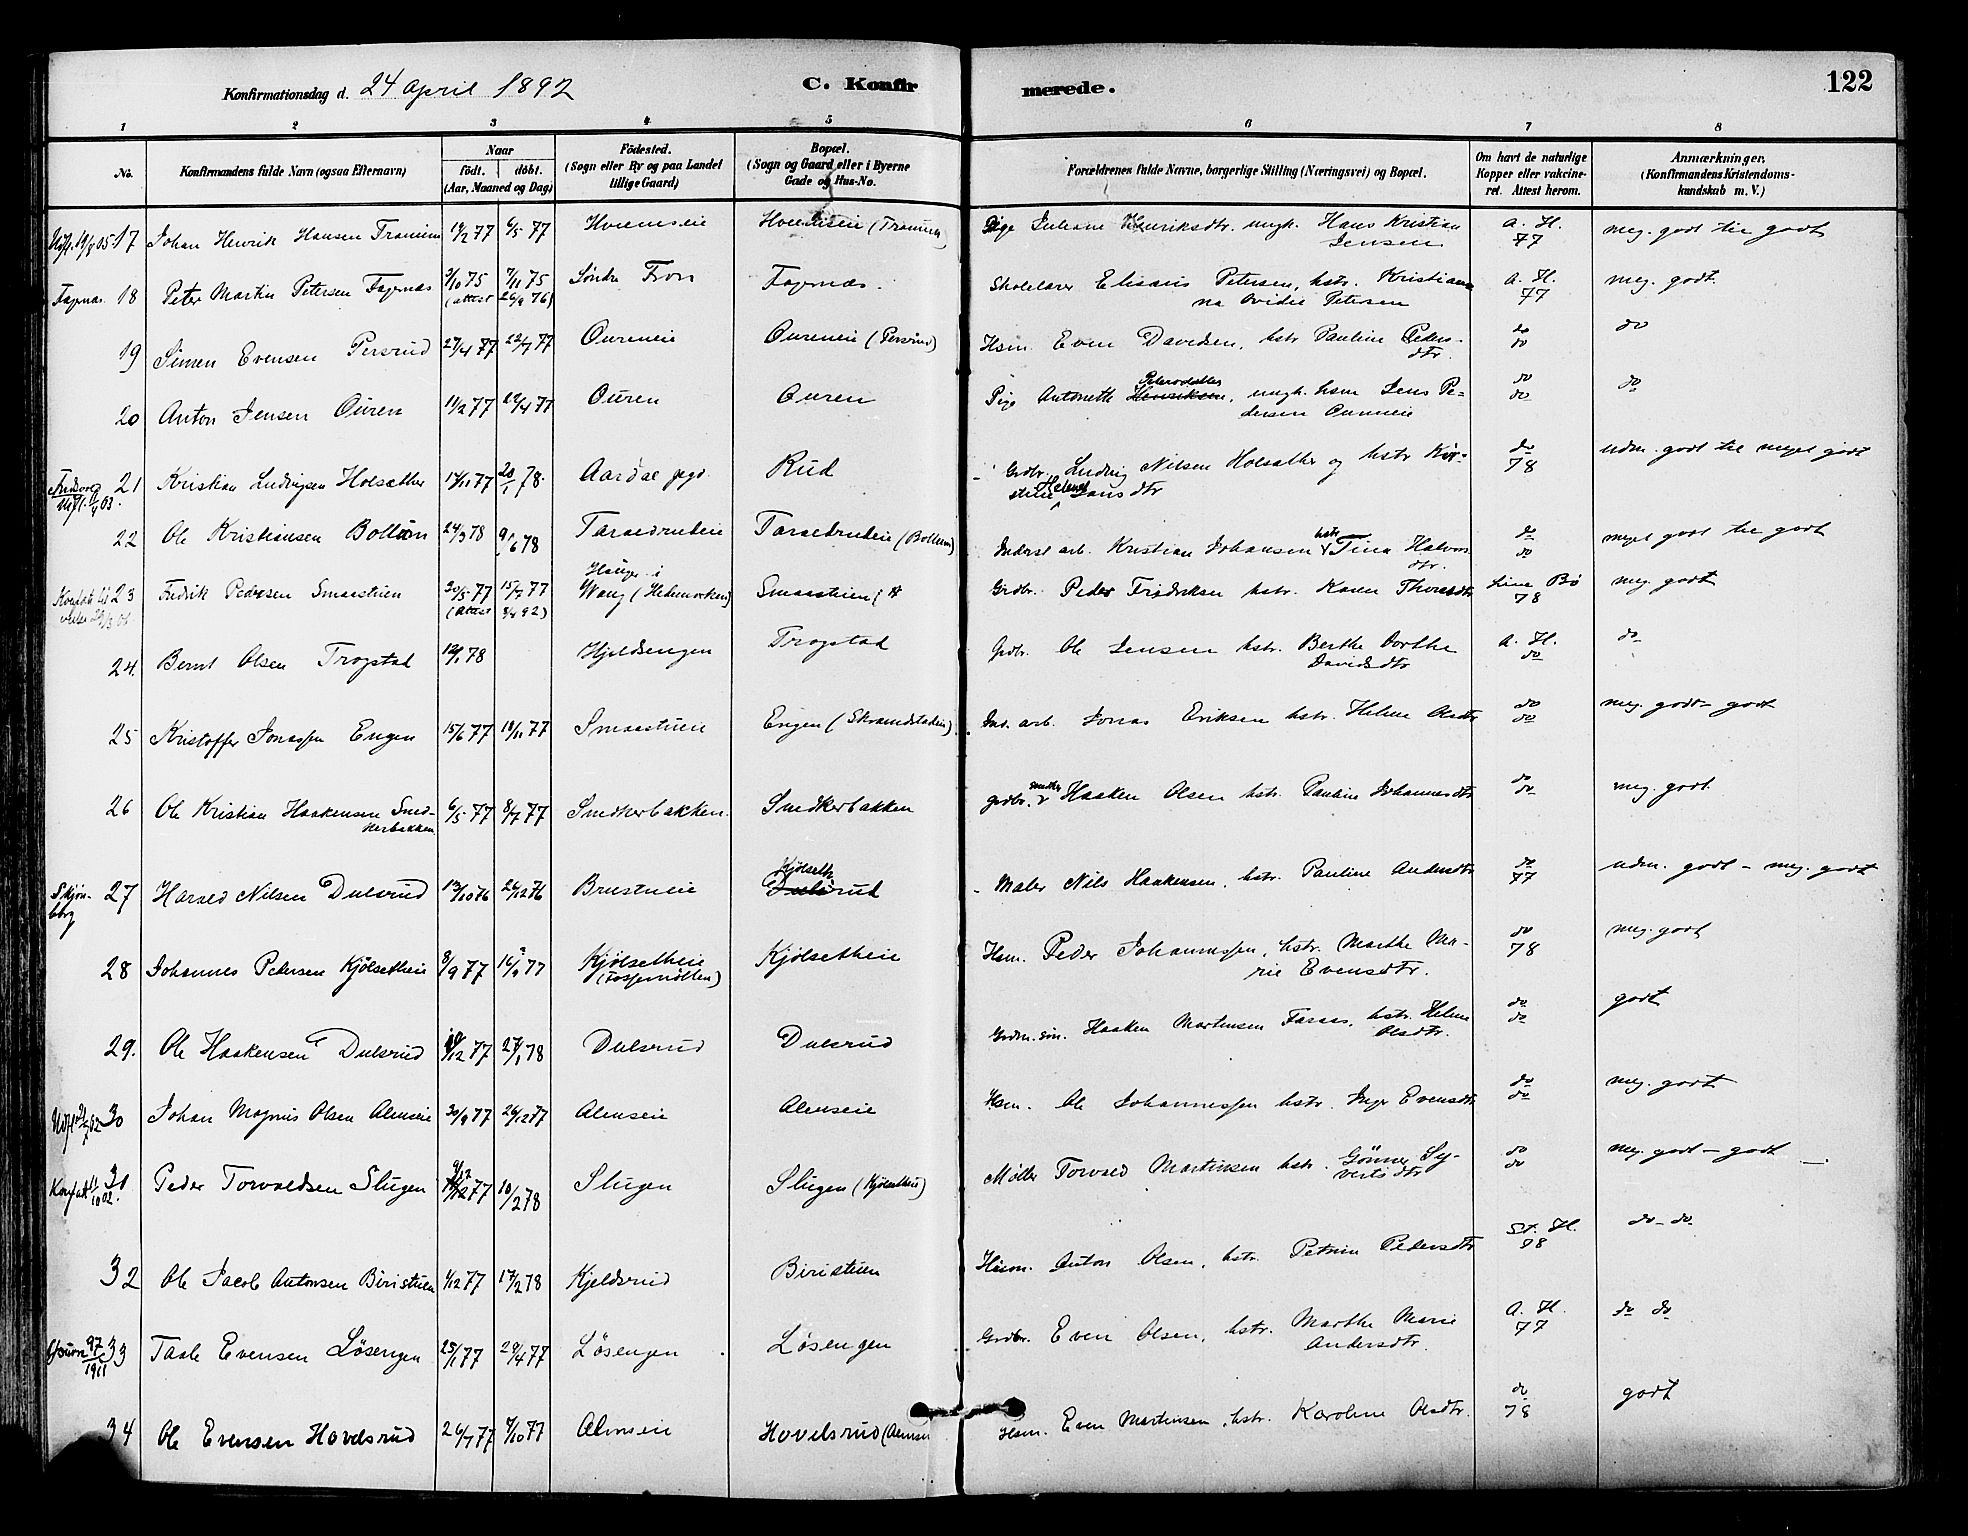 Konfirmationsdag d. 24 April 1892 C. Konfirmerede. 122
1 2 3 4 5 6 7 8
No. Konfirmandens fulde Navn (ogsaa Efternavn) Naar födt. döbt. (Aar, Maaned og Dag) Födested. (Sogn eller By og paa Landet tillige Gaard) Bopæl. (Sogn og Gaard eller i Byerne Gade og Hus-No. Forældrenes fulde Navne, borgerlige Stilling (Næringsvei) og Bopæl. Om havt de naturlige Kopper eller vakcineret. Attest herom. Anmærkninger. (Konfirmandens Kristendomskundskab m. V.)
17 Johan Henrik Hansen 19/2 77 6/5 77 Hveemseie Pige Juliane Henriksdtr. ungk. Hans Kristian Jensen A. H. 77 meg. godt til godt
Fagernæs. 18 Peter Martin Petersen Fagernæs 3/10 75 (attest 7/11 75 26/9 76) Söndre Fron Fagernæs. Skolelærer Elisæus Petersen, hstr. Kristianna Ovidie Petersen A. H. 77 meg. godt.
19 Simen Evensen Persrud 27/4 77 22/7 77 Oureneie Oureneie (Persrud) Hsm. Even Davidsen, hstr Pauline Pedersdtr. do do do
20 Anton Jensen Ouren 11/2 77 22/4 77 Ouren Ouren Pige Antonette Henriksen, ungk. hsm Jens Pedersen do do do
21 Kristian Ludvigsen Holsæther 14/11 77 20/1 78. Aardal pgd. Rud Grdbr. Ludvig Nilsen Holsæther og hstr Kirstine Helene Hansdtr do 78 udm. godt til meget godt
22 Ole Kristiansen Bollum 24/3 78 9/6 78 Taraldrudeie Taraldrudeie (Bollum) Inderst arb. Kristian Johansen & hstr Tina Halvorsdtr. do do meget godt til godt
23 Fredrik Pedersen Smaastuen 30/5 77 (attest 15/7 77 3/4 92) Hauger i Wang (Hedemarken) Smaastuen Grdbr. Peder Fredriksen hstr. Karen Thoresdtr 78 meg. godt
24. Bernt Olsen Trogstad 12/1 78 Hjeldsengen Trogstad Grdbr. Ole Jensen hstr. Berthe Dorthe Davidsdtr A. H. do do
25 Kristoffer Jonassen Engen 15/6 77 19/11 77 Smaastueie Engen (Skramstadeie) Ind. arb. Jonas Eriksen hstr. Helene Olsdtr do do meg. godt - godt
26 Ole Kristian Haakensen Smedkerbakken 6/5 77 8/7 77 Smedkerbakken. Smedkerbakken grdbr. & snedker Haaken Olsen hstr. Pauline Johannesdtr do do meg. godt.
Skjönberg 27 Harald Nilsen Dulsrud 13/10 76 26/12 76 Brustueie Kjölseth Dulsrud Maler Nils Haakensen, hstr. Pauline Andersdtr do 77 udm. godt - meg. godt
28 Johannes Pedersen Kjölsetheie 8/9 77 16/9 77 Kjölsetheie (Fossemölten) Kjölsetheie Hsm. Peder Johannessen, hstr. Marthe Marie Evensdtr. do 78 meg. godt
29. Ole Haakensen Dulsrud 10/12 77 27/1 78 Dulsrud Dulsrud Grdm. sön. Haaken Martinsen Faraas, hstr. Helene Olsdtr. do do godt
30 Johan Magnus Olsen Almseie 30/9 77 26/12 77 Almseie Almseie Hsm. Ole Johannessen hstr. Inger Evensdtr do do meg. godt
31 Peder Torvaldsen Slugen 9/12 77 10/2 78 Slugen Slugen (Kjölsetheie) Möller Torvald Martinsen hstr. Gönner Syvertsdtr do do meg. godt - godt
32 Ole Jacob Antonsen Biristuen 1/12 77 17/2 78 Kjeldsrud Biristuen Husm. Anton Olsen, hstr. Petrine Pedersdtr St. H. 78 do - do
97/1911 33 Taale Evensen Løsengen 25/1 77 29/4 77 Løsengen Løsengen Grdbr. Even Olsen, hstr. Marthe Marie Andersdtr. A. H. 77 do do
34 Ole Evensen Hovelsrud 26/7 77 7/10 77 Almseie Hovelsrud (Almseie Hsm. Even Martinsen, hstr. Karoline Olsdtr. do 78 godt